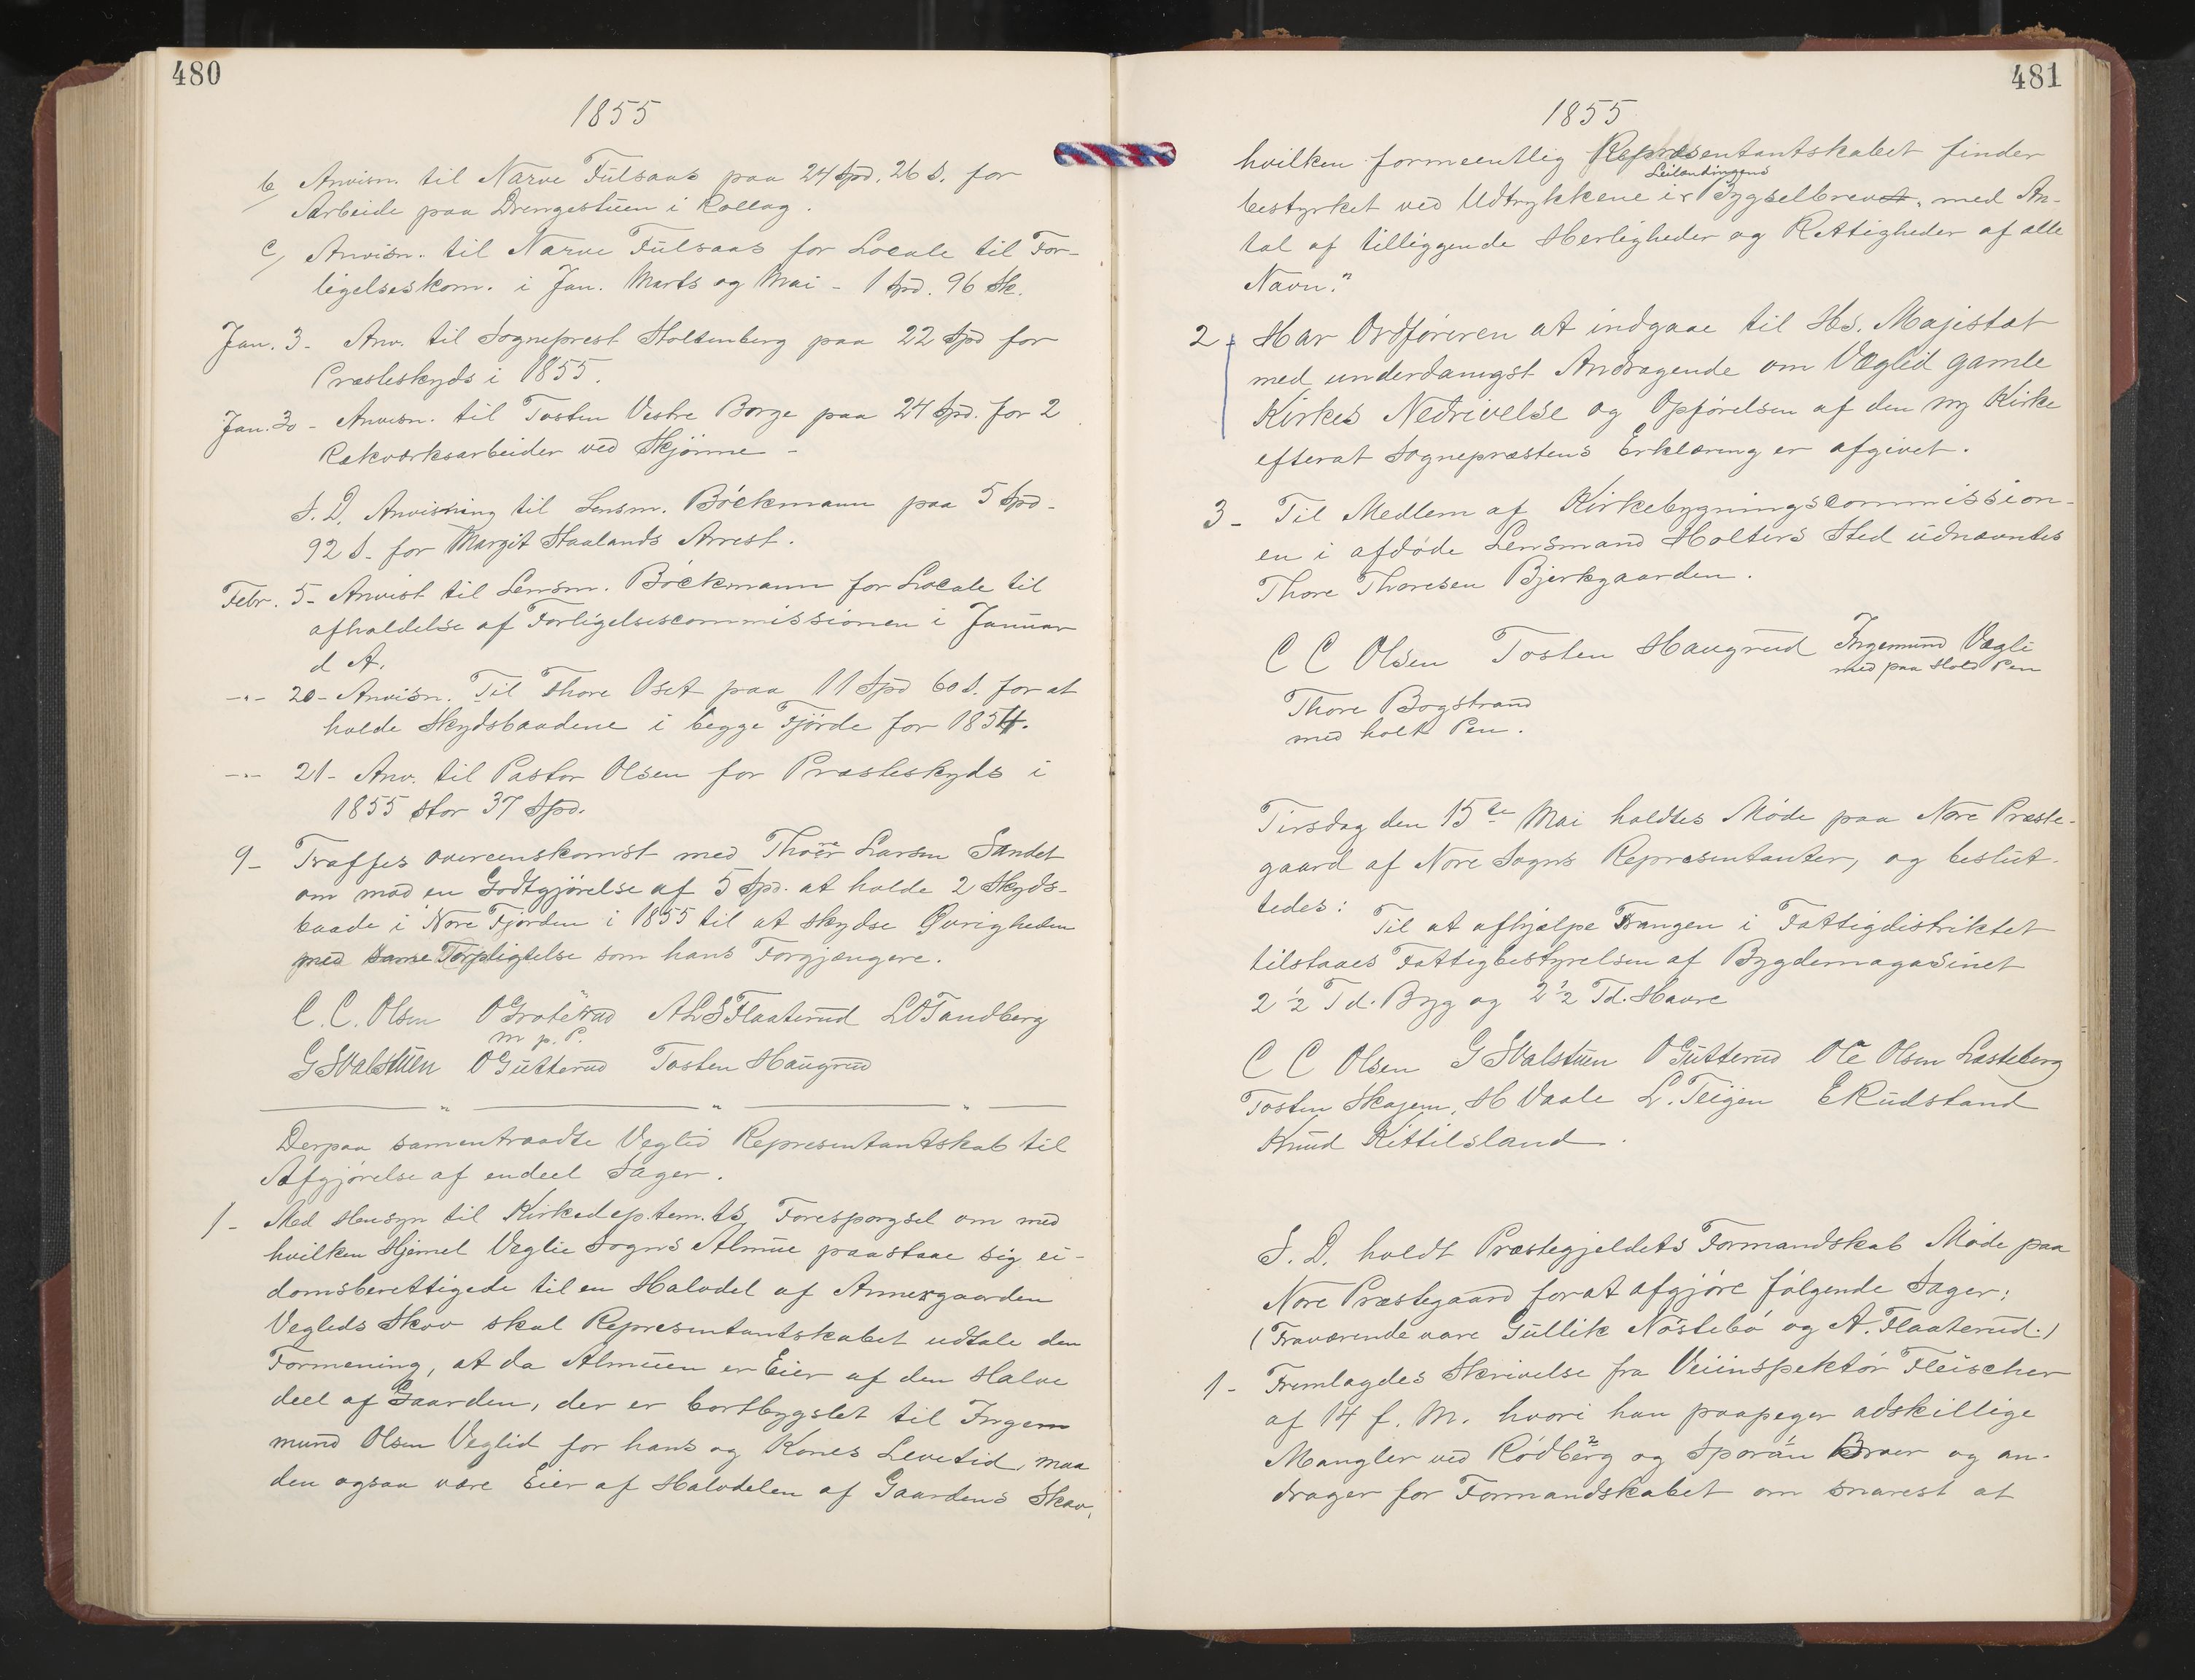 480
1855
b/ Anvisn. til Narve Fulsaas paa 24 Spd. 26 S. for
Arbeide paa Drengestuen i Rollag.
c/ Anvisn. til Narve Fulsaas for Locale til For-
ligelseskom. i Jan. Marts og Mai - 1 Spd. 96 Sk.
Jan. 3 - Anv. til Sogneprest Stoltenberg paa 22 Spd for
Præsteskyds i 1855.
Jan. 30 - Anvisn. til Tosten Vestre Borge paa 24 Spd. for 2
Rækværksarbeider ved Skjönne -
S. D. Anvisning til Lensm. Böckmann paa 5 Spd -
92 S. for Margit Staalands Arrest.
Febr. 5 - Anvist til Lensm. Böckmann for Locale til
afholdelse af Forligelsescommissionen i Januar
d A.
-"- 20 - Anvisn. Til Thore Oset paa 11 Spd 60 S. for at
holde Skydsbaadene i begge Fjörde for 1854.
-"- 21 - Anv. til Pastor Olsen for Præsteskyds i
1855 stor 37 Spd.
9 - Traffes overeenskomst med Thore Larsen Sandet
om mod en Godtgjörelse af 5 Spd. at holde 2 Skyds-
baade i Nore Fjorden i 1855 til at skydse Øvrigheden
med samme Forpligtelse som hans Forgjængere.
C. C. Olsen O Groterud A L S Flaaterud L O Tandberg
m p. P.
G S Valstuen O Gutterud Tosten Haugrud
Derpaa samentraadte Veglid Representantskab til
Afgjörelse af endeel Sager.
1 - Med Hensyn til Kirkedep.tem.ts Foresporgsel om med
hvilken Hjemel Veglie Sogns Almue paastaae sig ei-
domsberettigede til en Halvdel af Annexgaarden
Vegleds Skov skal Representantskabet udtale den
Formening, at da Almuen er Eier af den Halve
deel af Gaarden, der er bortbygslet til Ingem
mund Olsen Veglid for hans og Kones Levetid, maa
den ogsaa være Eier af Halvdelen af Gaardens Skov,
481
1855
hvilken formeentlig Repræsentantskabet finder
Leilændingens
bestyrket ved Udtrykkene i Bygselbrevet, med An-
tal af tilliggende Herligheder og Rettigheder af alle
Navn."
2 - Har Ordføreren at indgaae til Hs. Majestæt
med underdanigst Andragende om Væglid gamle
Kirkes Nedrivelse og Opførelsen af den ny Kirke
efterat Sognepræstens Erklæring er afgivet.
3 - Til Medlem af Kirkebygningscommission-
en i afdöde Lensmand Holters Sted udnævntes
Thore Thoresen Bjerkgaarden.
C C Olsen Tosten Haugrud Ingemund Vægli
med paa Hold Pen
Thore Bogstrand
med holt Pen.
Tirsdag den 15de Mai holdtes Möde paa Nore Præste-
gaard af Nore Sogns Representanter, og beslut-
tedes:
Til at afhjælpe Trangen i Fattigdistriktet
tilstaaes Fattigbestyrelsen af Bygdemagasinet
2 1/2 Td. Byg og 2 1/2 Td. Havre
C C Olsen G S Valstuen O Gutterud Ole Olsen Læsteberg
Tosten Skajem, H Vaale L. Teigen E Rudstand
Knud Kittilsland.
S. D. holdt Præstegjeldets Formandskab Möde paa
Nore Præstegaard forat afgjöre fölgende Sager:
(Fraværende vare Gullik Nöstebö og A. Flaaterud.)
1 - Fremlagdes Skrivelse fra Veiinspektör Fleischer
af 14 f. M. hvori han paapeger adskillige
Mangler ved Rödberg og Sporan Broer og an-
drager for Formandskabet om snarest at